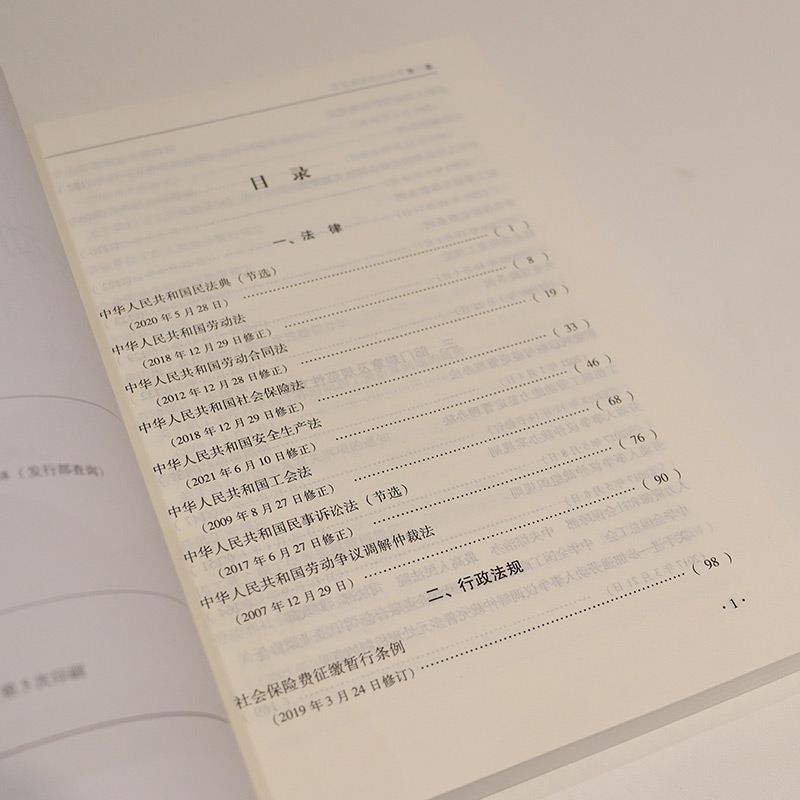 目 录
一、法 律
中华人民共和国民法典（节选）
（2020 年 5 月 28 日） （ 1 ）
中华人民共和国劳动法
（2018 年 12 月 29 日修正） （ 8 ）
中华人民共和国劳动合同法
（2012 年 12 月 28 日修正） （ 19 ）
中华人民共和国社会保险法
（2018 年 12 月 29 日修正） （ 33 ）
中华人民共和国安全生产法
（2021 年 6 月 10 日修正） （ 46 ）
中华人民共和国工会法
（2009 年 8 月 27 日修正） （ 68 ）
中华人民共和国民事诉讼法（节选）
（2017 年 6 月 27 日修正） （ 76 ）
中华人民共和国劳动争议调解仲裁法
（2007 年 12 月 29 日） （ 90 ）
二、行政法规
社会保险费征缴暂行条例
（2019 年 3 月 24 日修订） （ 98 ）
· 1 ·
（发行部查询）
第 5 次印刷